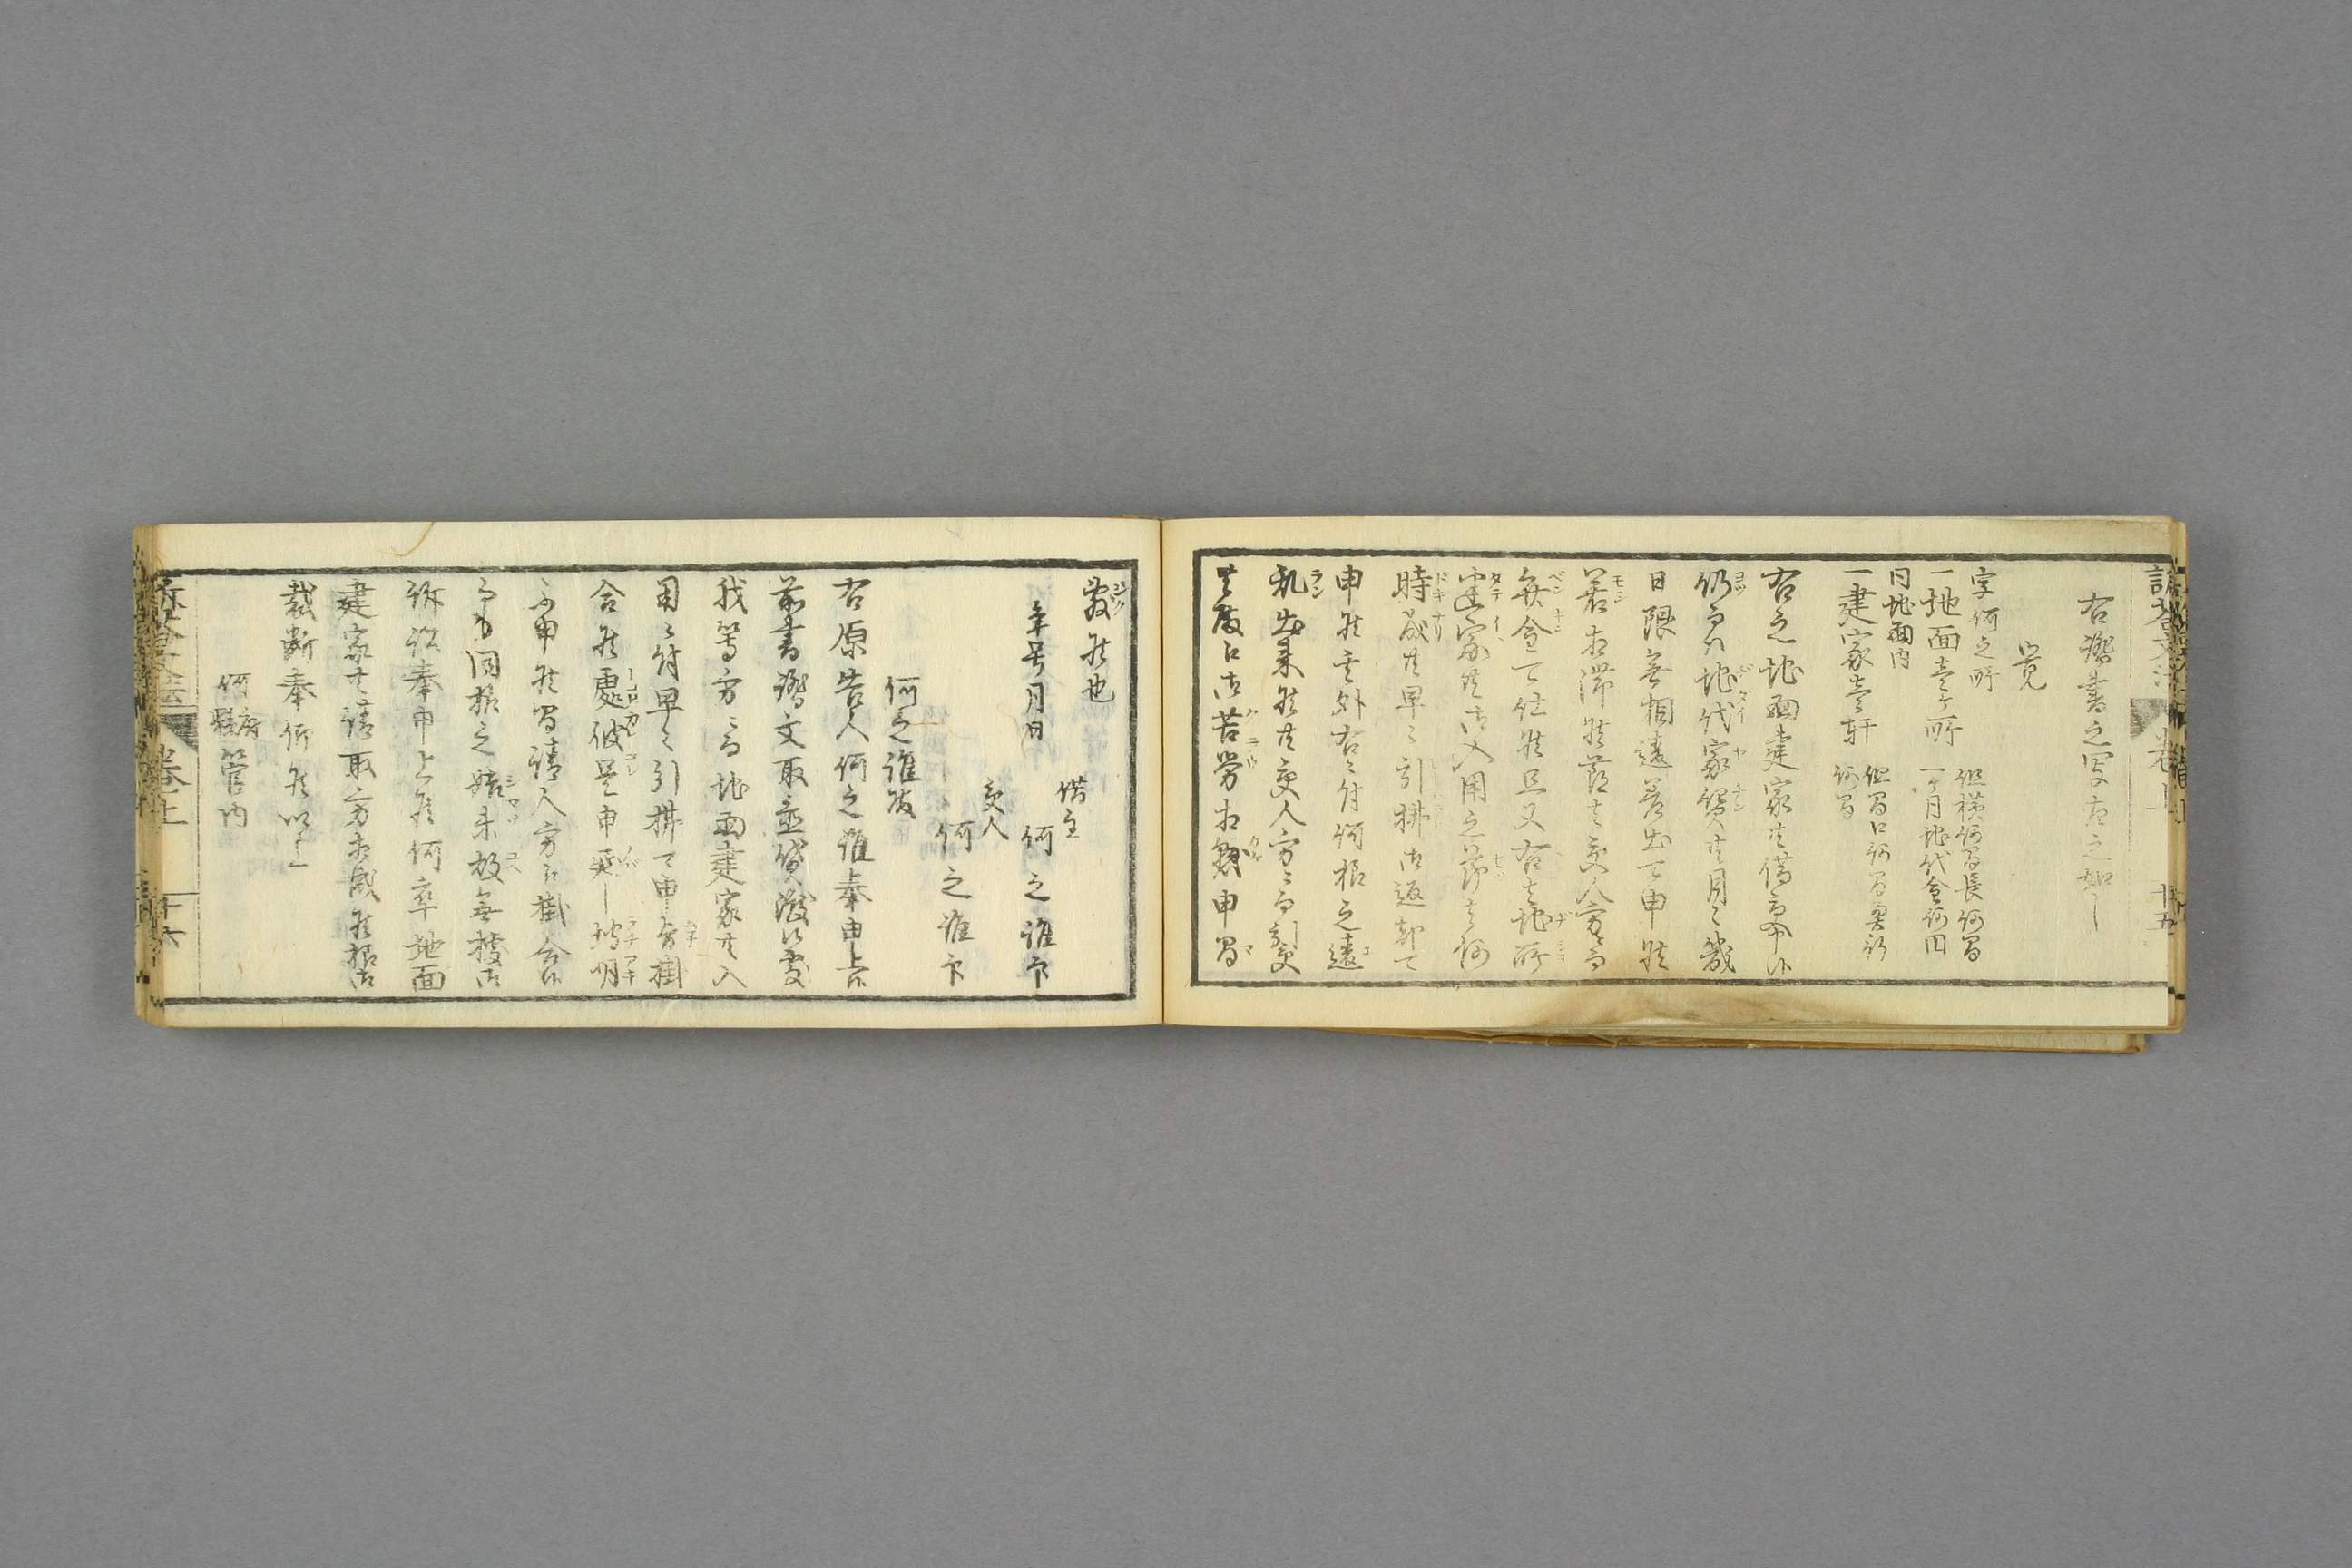 右證書之写左之如し
覚
字何之所
一地面壱ヶ所
但横何間長何間
一ヶ月地代金何円
同地面内
一建家壱軒
但間口何間奥行
何間
右之地面建家共借受申候
仍而者地代家賃共月々幾
日限無相違差出可申候
若相滞候節者受人方ニ而
弁金可仕候且又右之地所
建家共御入用之節者何
時成共早々引拂御返却可
申候其外右ニ付何様之違
乱出来候共受人方ニ而引受
其度江御苦労相懸申間
敷候也
年号月日
借主
何之誰印
受人
何之誰印
何之誰殿
右原告人何之誰奉申上候
前書證文取並賃渡候処
我等方ニ而地面建家共入
用ニ付早々引拂可申旨掛
合候處彼是申延し埒明
不申候間請人方江掛合候
而も同様之始末故無拠御
訴訟奉申上候何卒地面
建家共請取方相成候様御
裁断奉仰候以上
何府縣管内
巻上
十六
十五